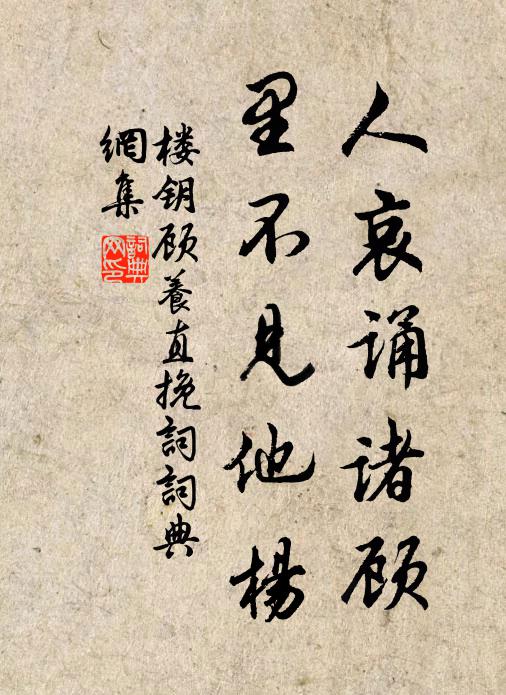 人哀诵诸顾
里不见他杨
楼钥顾養直挽詞詞典
網集
詞典
网印